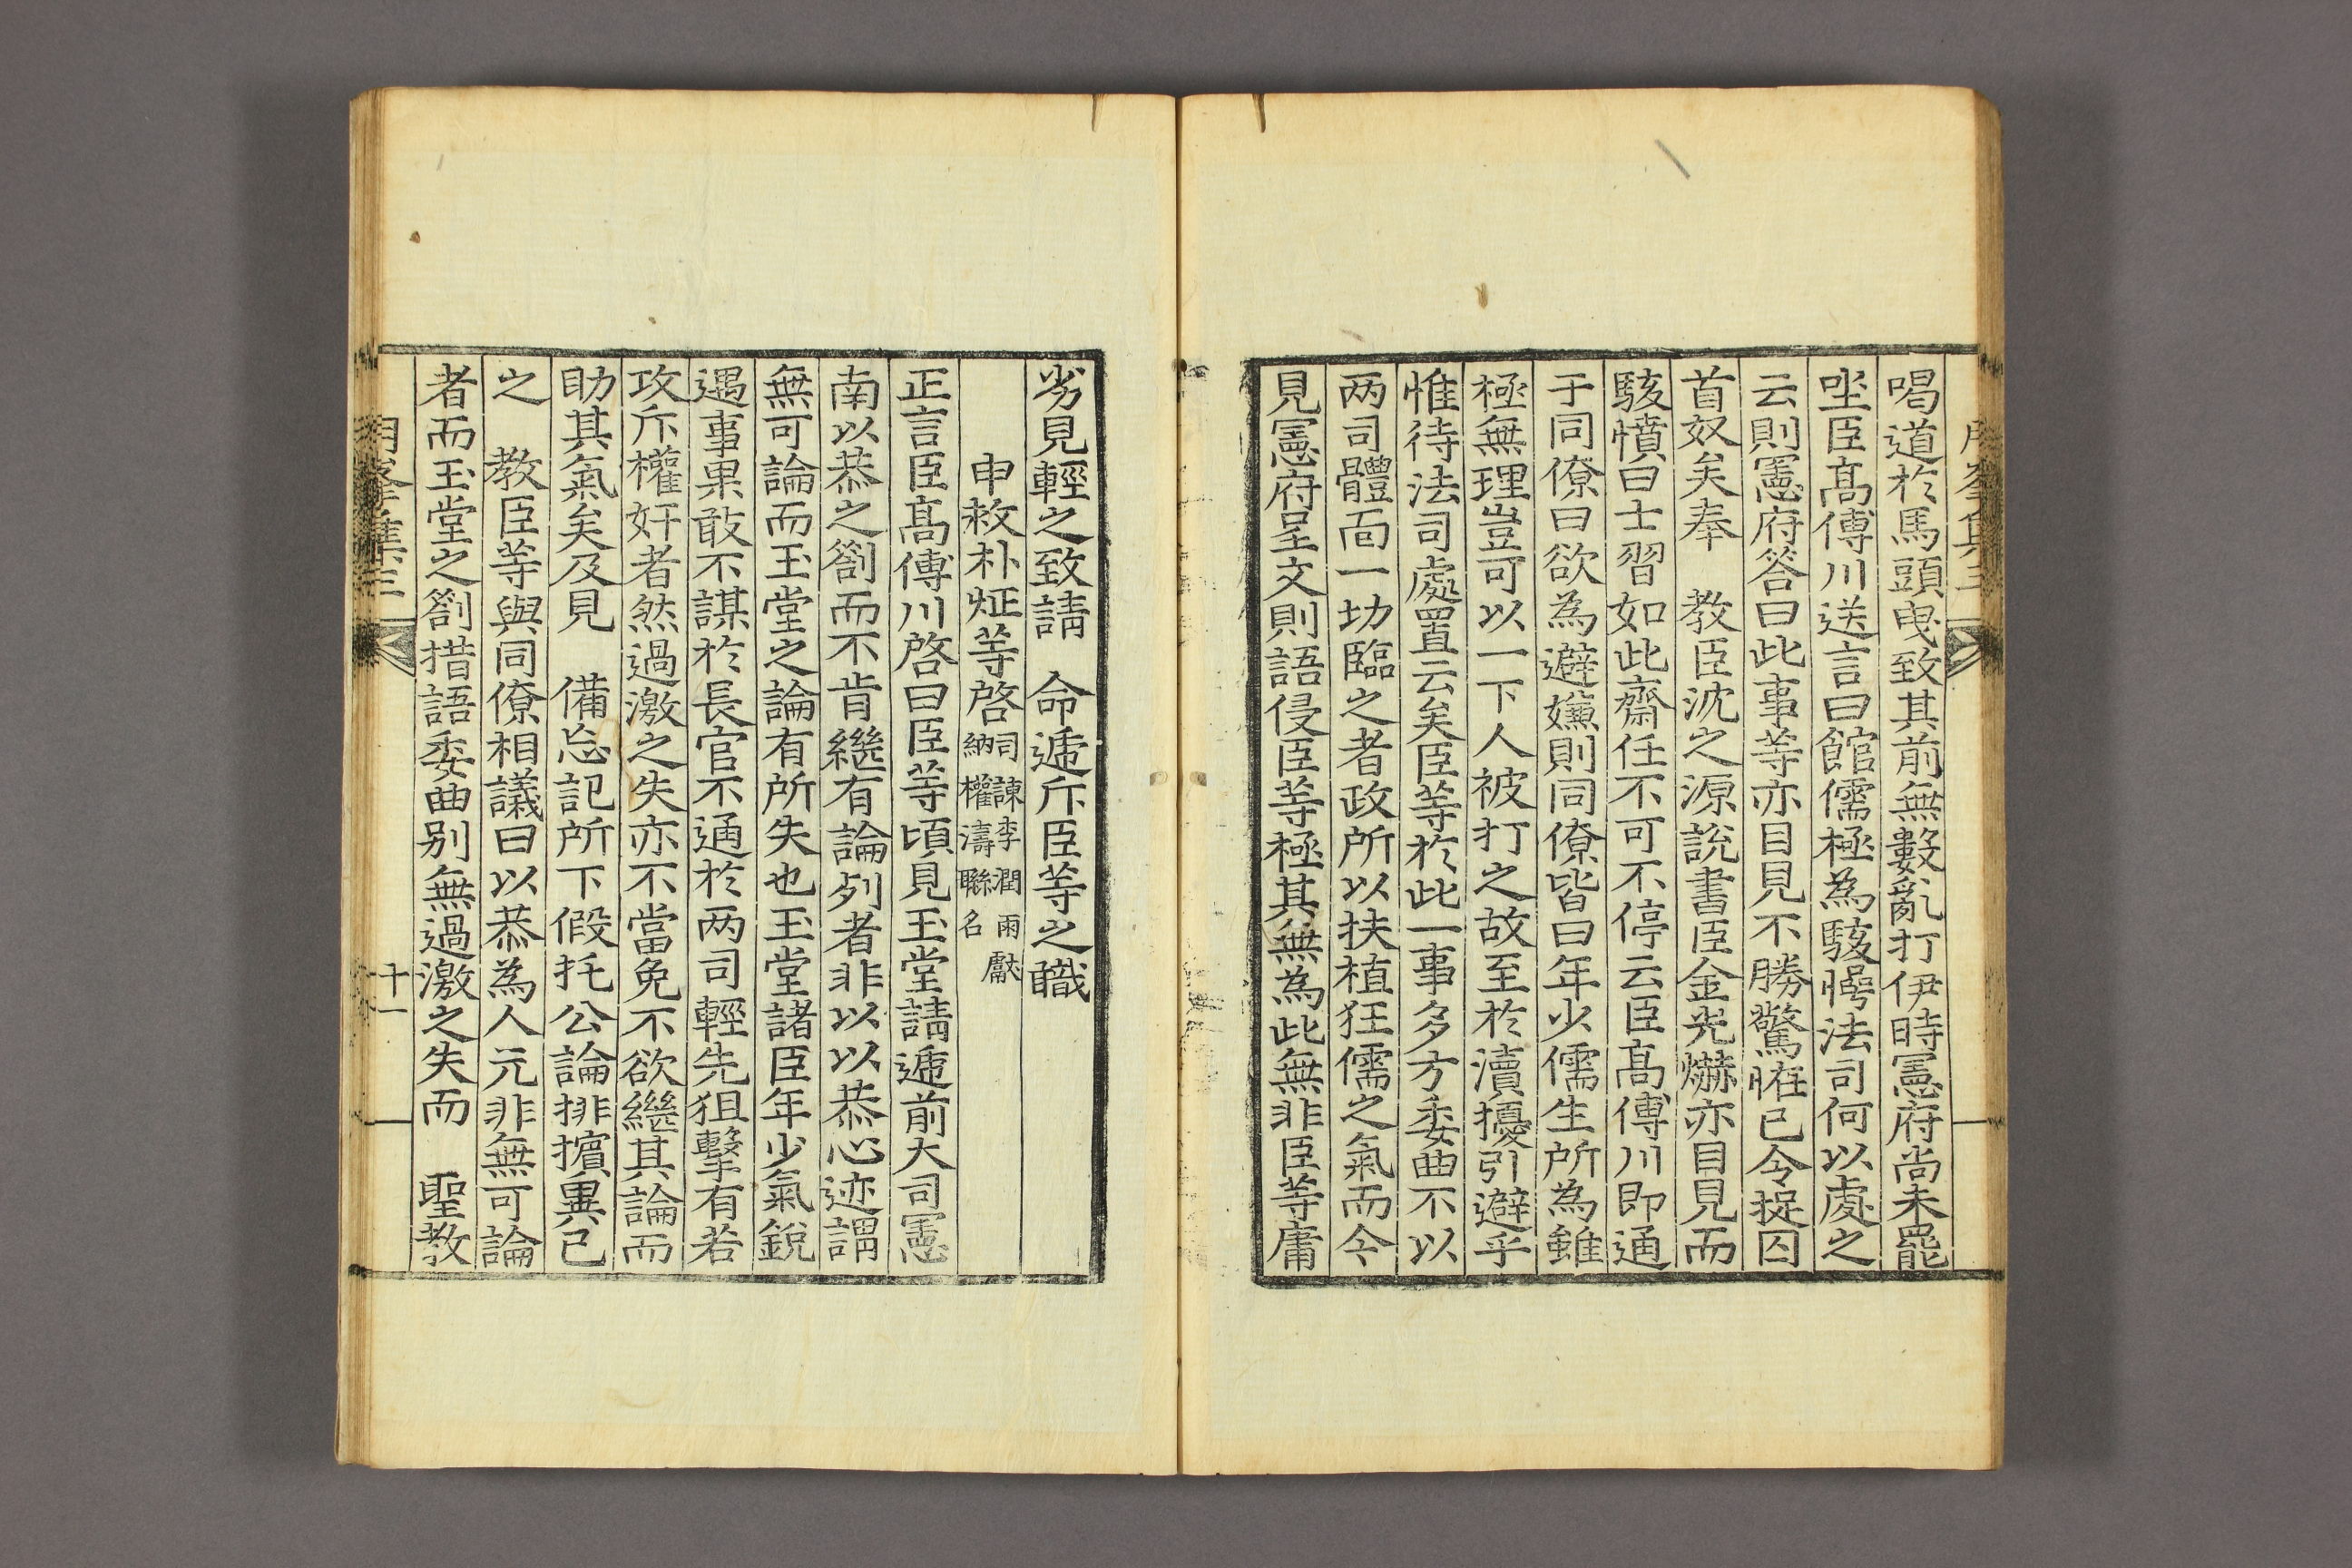 喝道於馬頭曳致其前無數亂打伊時憲府尚未罷
坐臣高傅川送言曰館儒極為駭愕法司何以處之
云則憲府答曰此事等亦目見不勝驚恠已令捉囚
首奴矣奉　教臣沈之源說書臣金光爀亦目見而
駭憤曰士習如此齋任不可不停云臣高傅川即通
于同僚曰欲為避嫌則同僚皆曰年少儒生所為雖
極無理豈可以一下人被打之故至於瀆擾引避乎
惟待法司處置云矣臣等於此一事多方委曲不以
两司體面一切臨之者政所以扶植狂儒之氣而今
見憲府呈文則語侵臣等極其無為此無非臣等庸
劣見輕之致請　命遞斥臣等之職
申救朴炡等啓司諫李潤雨獻
納權濤聯名
正言臣高傅川啓曰臣等頃見玉堂請遞前大司憲
南以恭之劄而不肯繼有論列者非以以恭心迹謂
無可論而玉堂之論有所失也玉堂諸臣年少氣銳
遇事果敢不謀於長官不通於两司輕先狙擊有若
攻斥權奸者然過激之失亦不當免不欲繼其論而
助其氣矣及見　備忘記所下假托公論排擯異己
之　教臣等與同僚相議曰以恭為人元非無可論
者而玉堂之劄措語委曲別無過激之失而　聖教
十一